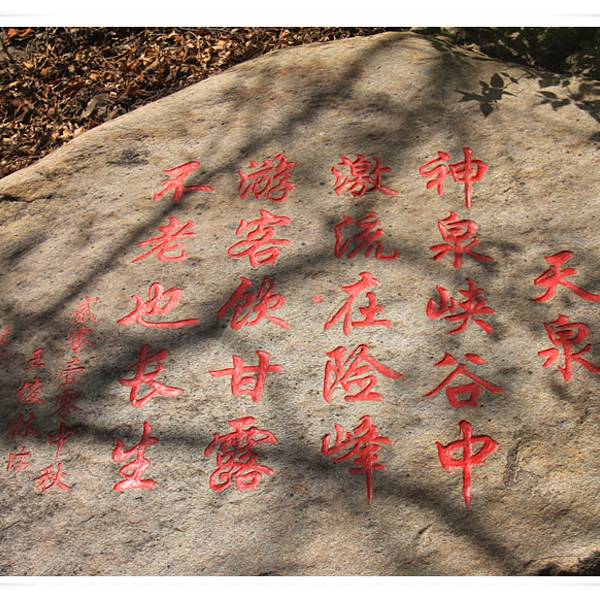 天泉
神泉峡谷中
激流在险峰
游客饮甘露
不老也长生